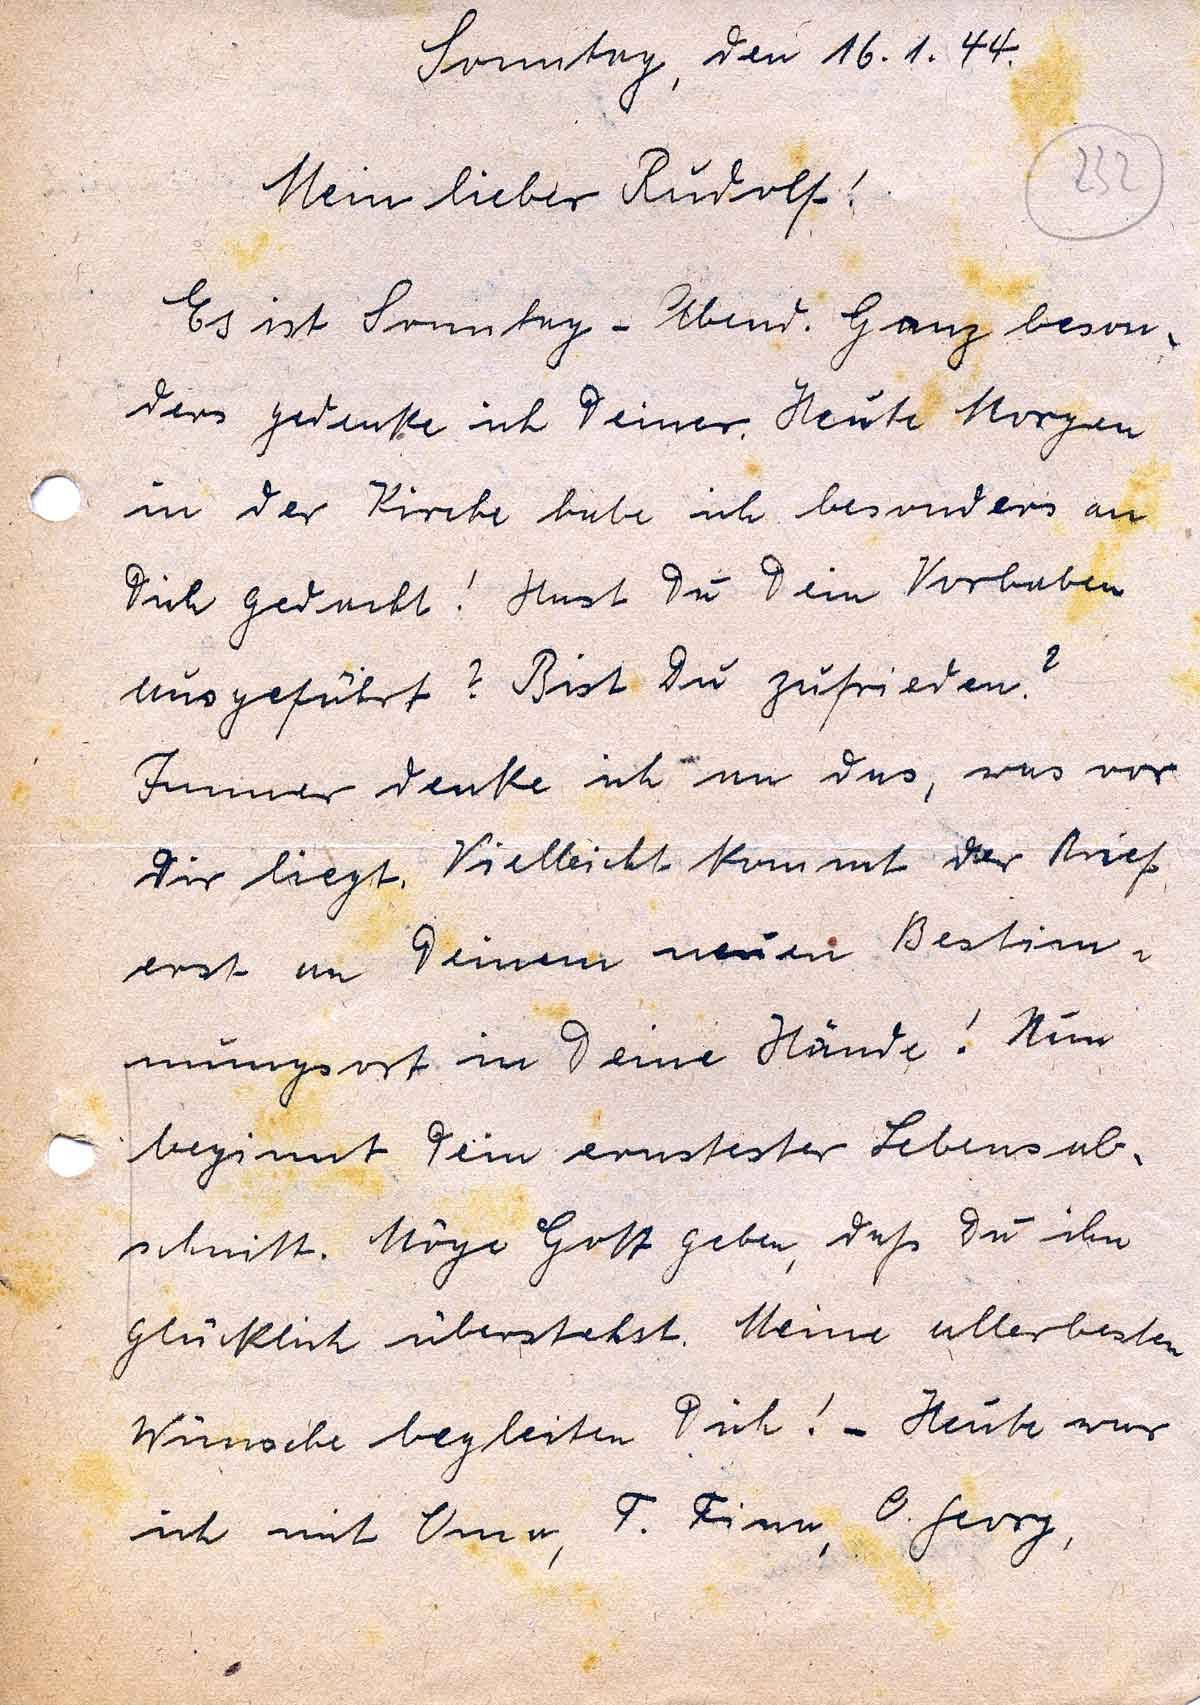 Sonntag, den 16. 1. 44.
232
Mein lieber Rudolf!
Es ist Sonntag - Abend. Ganz beson-
ders gedenke ich Deiner. Heute Morgen
in der Kirche habe ich besonders an
Dich gedacht! Hast Du Dein Vorhaben
ausgeführt? Bist Du zufrieden?
Immer denke ich an das, was vor
Dir liegt. Vielleicht kommt der Brief
erst an Deinem neuen Bestim-
mungsort in Deine Hände! Nun
beginnt Dein ernstester Lebensab-
schnitt. Möge Gott geben, daß Du ihn
glücklich überstehst. Meine allerbesten
Wünsche begleiten Dich! - Heute war
ich mit Oma, T. Tina, O. Georg,